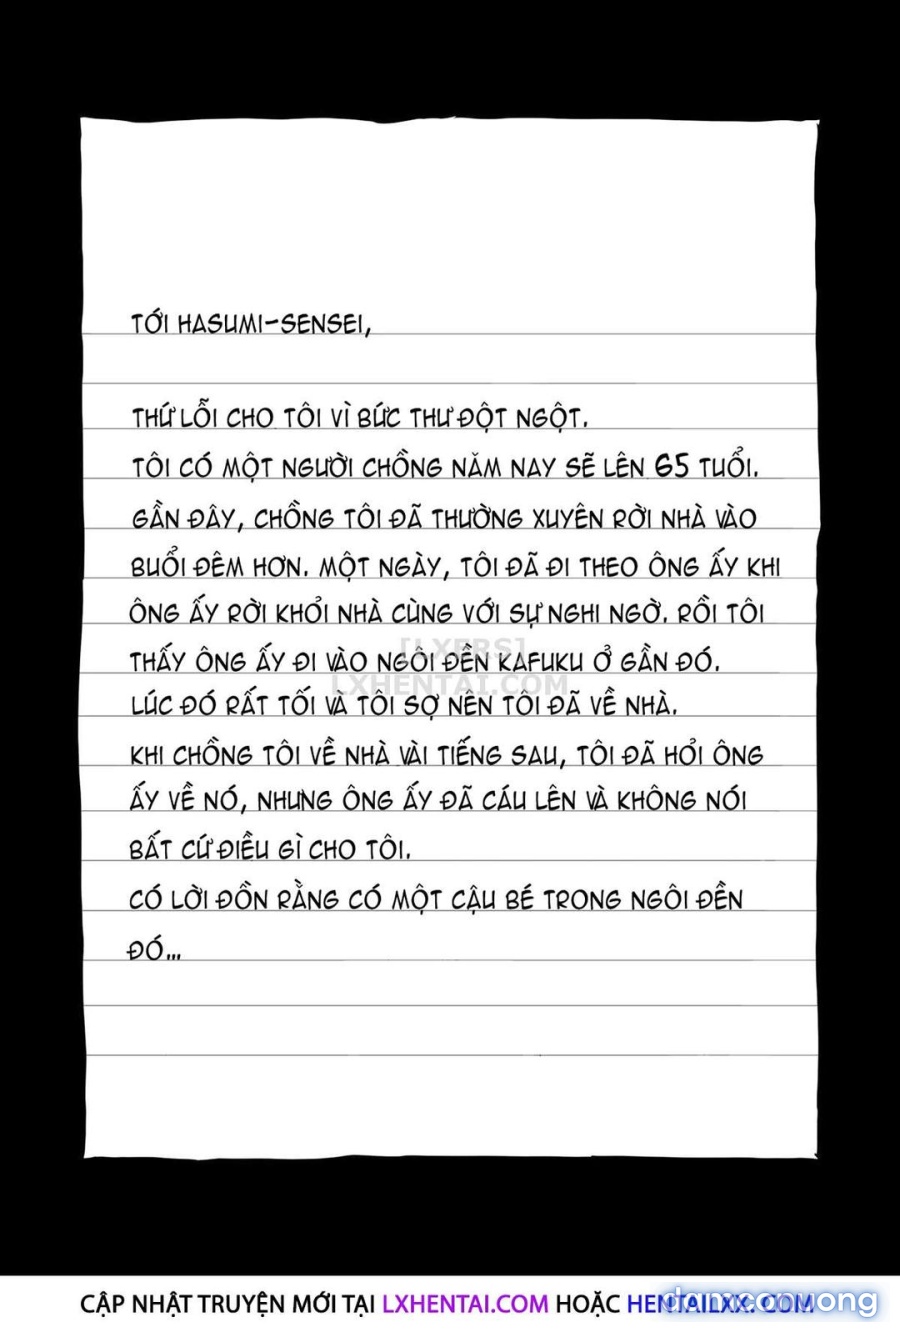 TỚI HASUMI-SENSEI,
THỨ LỖI CHO TÔI VÌ BỨC THƯ ĐỘT NGỘT.
TÔI CÓ MỘT NGƯỜI CHỒNG NĂM NAY SẼ LÊN 65 TUỔI.
GẦN ĐÂY, CHỒNG TÔI ĐÃ THƯỜNG XUYÊN RỜI NHÀ VÀO
BUỔI ĐÊM HƠN. MỘT NGÀY, TÔI ĐÃ ĐI THEO ÔNG ẤY KHI
ÔNG ẤY RỜI KHỎI NHÀ CÙNG VỚI SỰ NGHI NGỜ. RỒI TÔI
[LXERS]
THẤY ÔNG ẤY ĐI VÀO NGÔI ĐỀN KAFUKU Ở GẦN ĐÓ.
LXHENTAI.COM
LÚC ĐÓ RẤT TỐI VÀ TÔI SỢ NÊN TÔI ĐÃ VỀ NHÀ.
KHI CHỒNG TÔI VỀ NHÀ VÀI TIẾNG SAU, TÔI ĐÃ HỎI ÔNG
ẤY VỀ NÓ, NHƯNG ÔNG ẤY ĐÃ CÁU LÊN VÀ KHÔNG NÓI
BẤT CỨ ĐIỀU GÌ CHO TÔI.
CÓ LỜI ĐỒN RẰNG CÓ MỘT CẬU BÉ TRONG NGÔI ĐỀN
ĐÓ...
CẬP NHẬT TRUYỆN MỚI TẠI LXHENTAI.COM HOẶC HENTAILXX.COM
damconuong